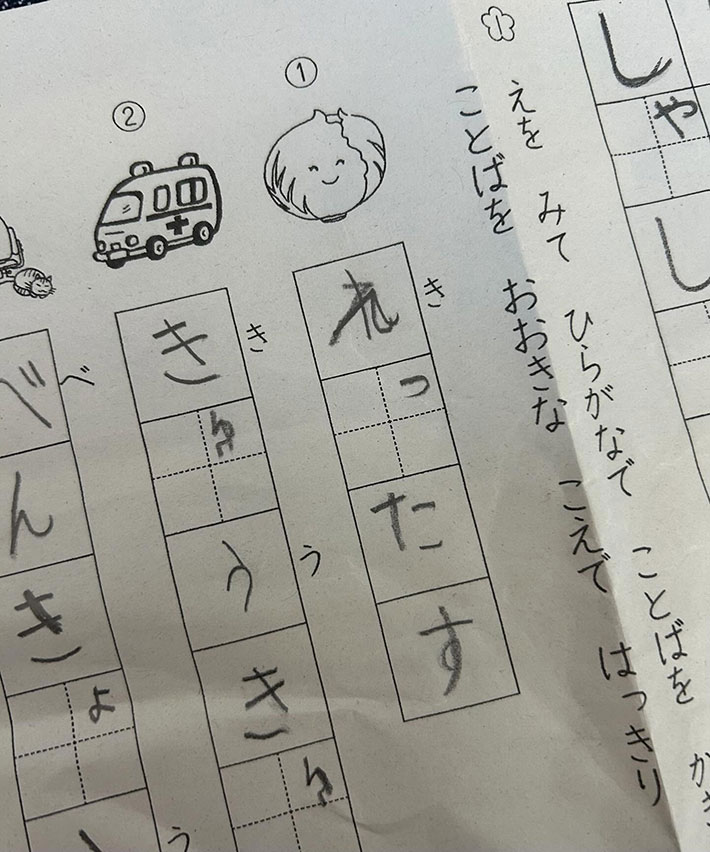 しゃし
1
えを みて ひらがなで ことばを かき
ことばを おおきな こえで はっきり
①
き
れったす
②
き う
きゅうきゅ
べ う
べんきょ